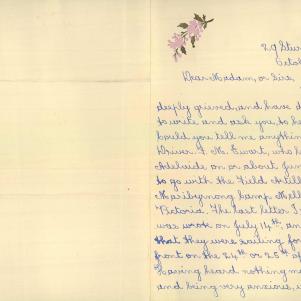 29 Stu
Octob
Dear Madam, or Sir,
deeply grieved, and have d
to write and ask you, to he
Could you tell me anything
Driver F. M. Ewart, who l
Adelaide on or about Jun
to go with the Field Artill
Maribyrnong Camp Melb
Victoria. The last letter I
was wrote on July 14th, an
that they were sailing for
front on the 24th or 25th of
Having heard nothing m
and being very anxious, w